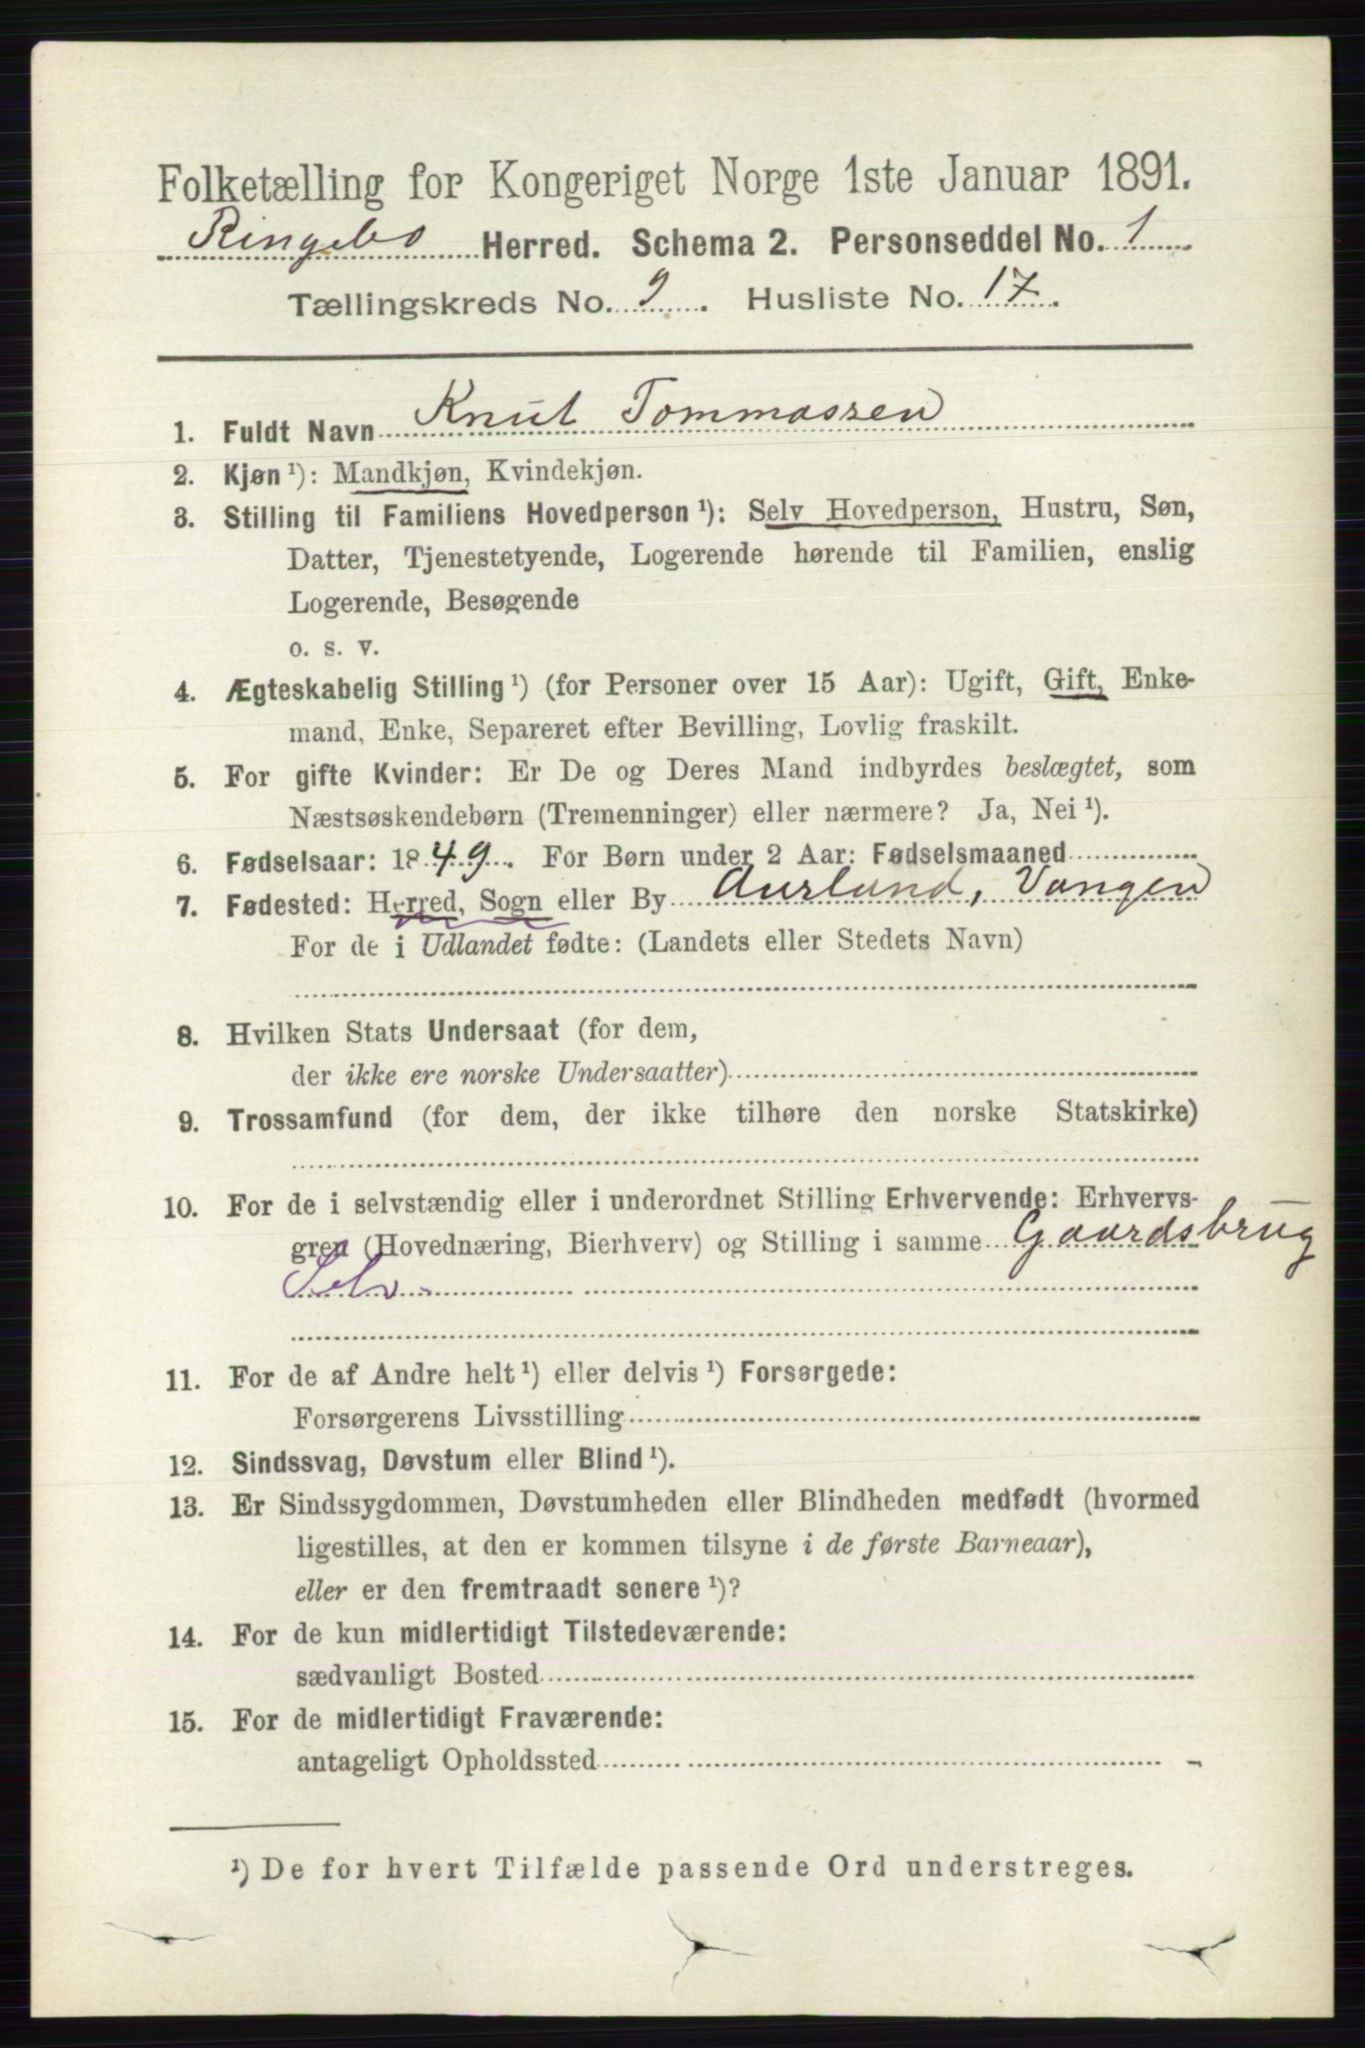 Folketælling for Kongeriget Norge 1ste Januar 1891.
Ringebo Herred. Schema 2. Personseddel No. 1
Tællingskreds No. 9. Husliste No. 17.
1. Fuldt Navn Knut Tommassen
2. Kjøn ¹): Mandkjøn, Kvindekjøn.
3. Stilling til Familiens Hovedperson ¹): Selv Hovedperson, Hustru, Søn,
Datter, Tjenestetyende, Logerende hørende til Familien, enslig
Logerende, Besøgende
o. s. v.
4. Ægteskabelig Stilling ¹) (for Personer over 15 Aar): Ugift, Gift, Enke-
mand, Enke, Separeret efter Bevilling, Lovlig fraskilt.
5. For gifte Kvinder: Er De og Deres Mand indbyrdes beslægtet, som
Næstsøskendebørn (Tremenninger) eller nærmere? Ja, Nei ¹).
6. Fødselsaar: 1849. For Børn under 2 Aar: Fødselsmaaned
7. Fødested: Herred, Sogn eller By Aurland, Vangen
For de i Udlandet fødte: (Landets eller Stedets Navn)
8. Hvilken Stats Undersaat (for dem,
der ikke ere norske Undersaatter)
9. Trossamfund (for dem, der ikke tilhøre den norske Statskirke)
10. For de i selvstændig eller i underordnet Stilling Erhvervende: Erhvervs-
gren (Hovednæring, Bierhverv) og Stilling i samme Gaardsbrug
Selv.
11. For de af Andre helt ¹) eller delvis ¹) Forsørgede:
Forsørgerens Livsstilling
12. Sindssvag, Døvstum eller Blind ¹).
13. Er Sindssygdommen, Døvstumheden eller Blindheden medfødt (hvormed
ligestilles, at den er kommen tilsyne i de første Barneaar),
eller er den fremtraadt senere ¹)?
14. For de kun midlertidigt Tilstedeværende:
sædvanligt Bosted
15. For de midlertidigt Fraværende:
antageligt Opholdssted
¹) De for hvert Tilfælde passende Ord understreges.